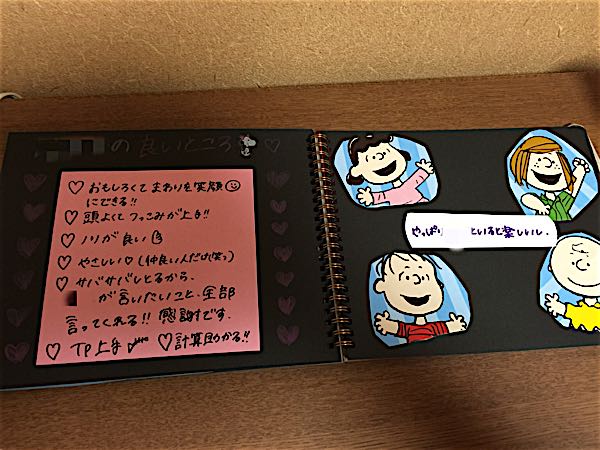 の良いところ
おもしろくてまわりを笑顔
にできる!!
頭よくてつっこみが上手!!
ノリが良い
やさしい♡(仲良い人だけ笑っ)
サバサバしとるから、
が言いたいこと、全部
言ってくれる!! 感謝です.
TP上手 ♡計算助かる!!
やっぱり といると楽しいし、